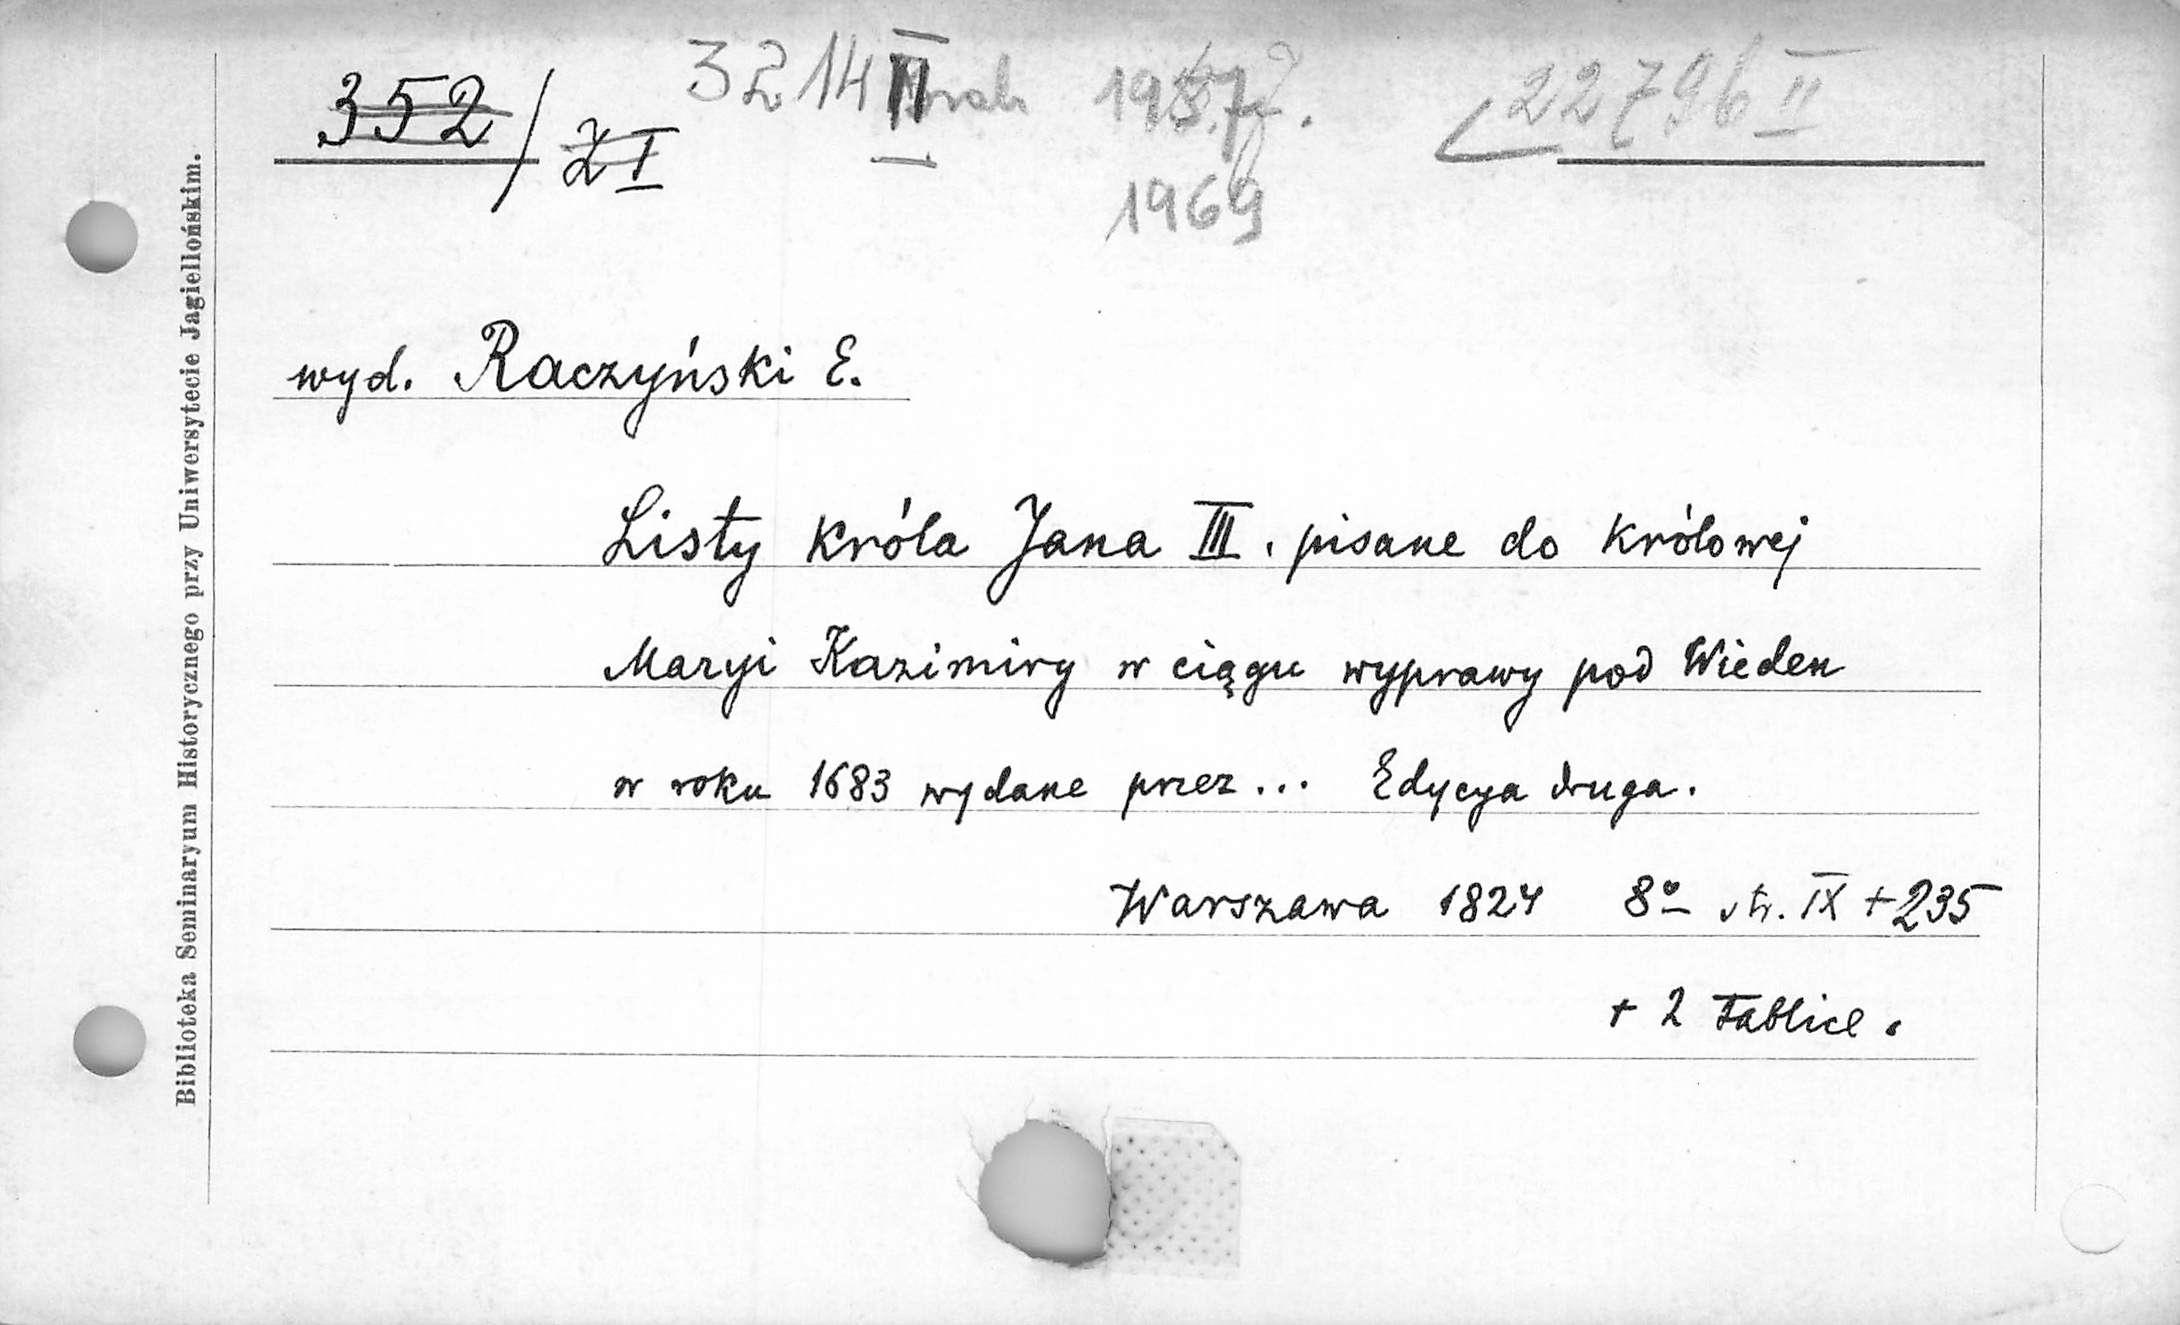 352 / Z I 3214 II brak 1957 22796 II
1969
wyd. Raczyński E.
Listy króla Jana III. pisane do królowej
Maryi Kazimiry w ciągu wyprawy pod Wieden
w roku 1683 wydane przez... Edycya druga.
Warszawa 1824 8º str. IX + 235
+ 2 tablice.
Biblioteka Seminaryum Historycznego przy Uniwersytecie Jagiellońskim.